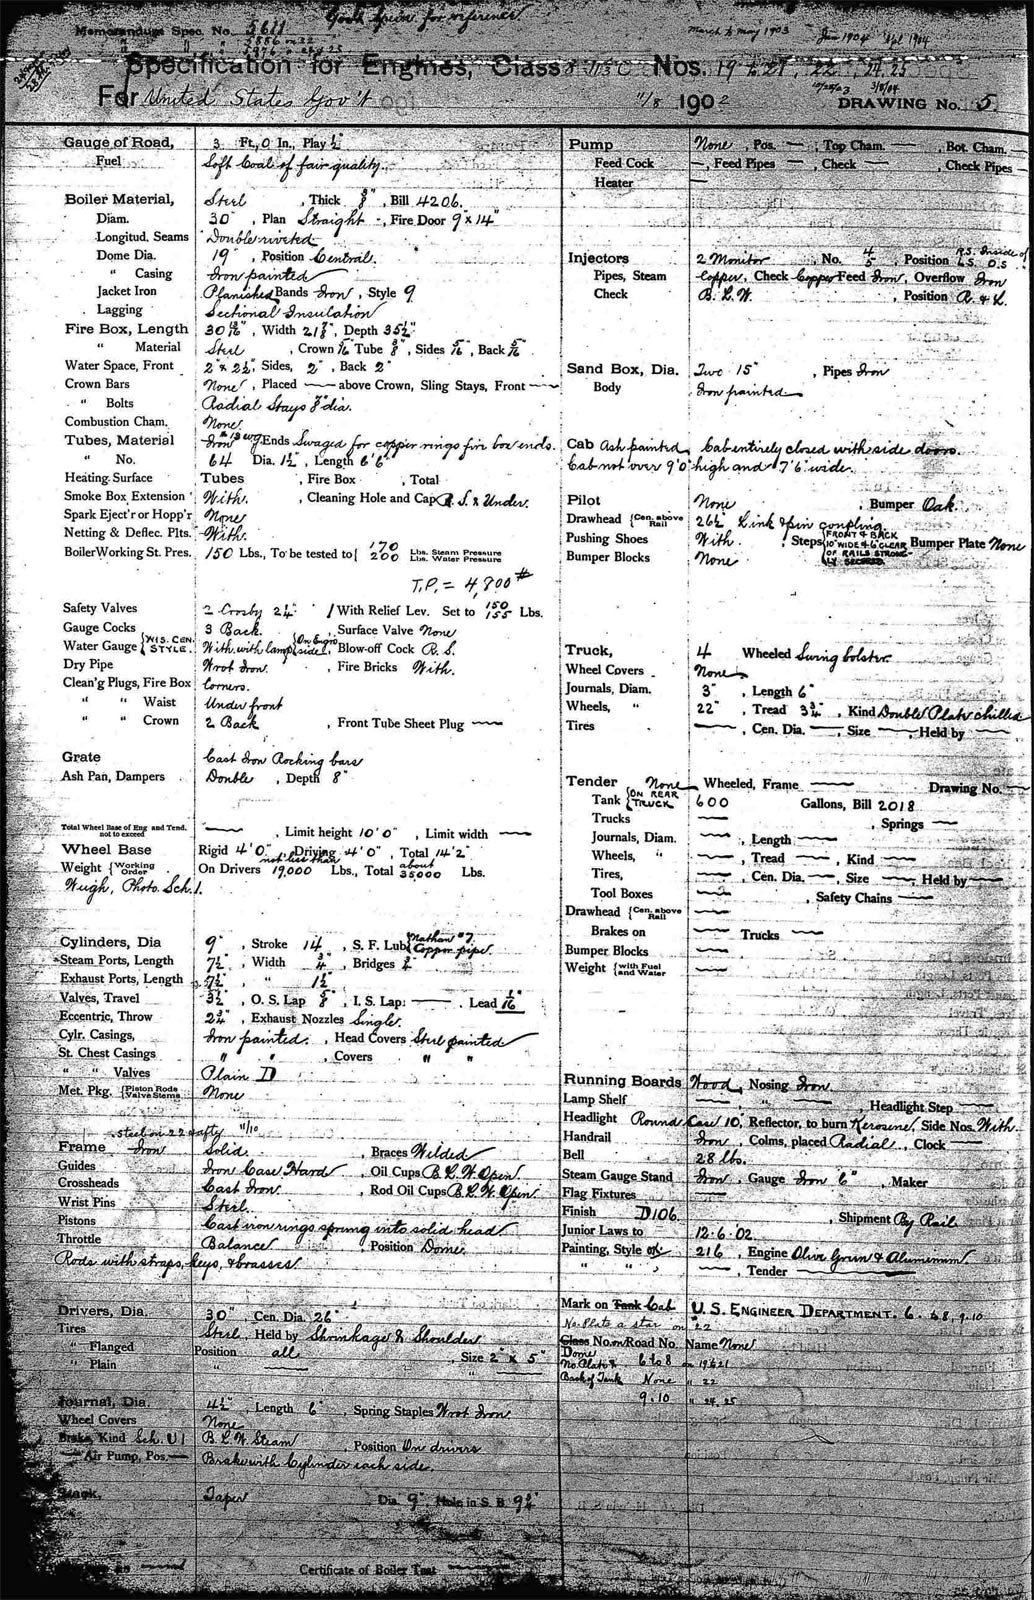 Good Specn. for reference
Memorandum Spec. No. 5611
5886 on 22
March & May 1903 Jan 1904 Apl 1904
Specification for Engines, Class 8 11⅓ C Nos. 19 to 21, 22, 24, 25
For United States Gov't 11/8 1902 DRAWING No. 5
Gauge of Road, 3 Ft., 0 In., Play ½"
Fuel Soft Coal of fair quality.
Boiler Material, Steel, Thick ⅜", Bill 4206.
Diam. 30", Plan Straight -, Fire Door 9" x 14"
Longitud. Seams Double riveted
Dome Dia. 19", Position Central.
" Casing Iron painted
Jacket Iron Planished Bands Iron, Style 9
Lagging Sectional Insulation
Fire Box, Length 30 , Width 21⅞, Depth 35½"
" Material Steel, Crown 5/16 Tube ⅜", Sides 5/16, Back 5/16
Water Space, Front 2" & 2½", Sides, 2", Back 2"
Crown Bars None, Placed — above Crown, Sling Stays, Front —
" Bolts Radial Stays ⅞" dia.
Combustion Cham. None.
Tubes, Material Iron #13 wg, Ends Swaged for copper rings fire box ends.
" No. 64 Dia. 1½", Length 6' 6"
Heating Surface Tubes , Fire Box , Total
Smoke Box Extension With. , Cleaning Hole and Cap R. S. & Under.
Spark Eject'r or Hopp'r None
Netting & Deflec. Plts. With.
Boiler Working St. Pres. 150 Lbs., To be tested to { 170 Lbs. Steam Pressure
200 Lbs. Water Pressure
T.P. = 4,800 #
Safety Valves 2 Crosby 2¼" 1 With Relief Lev. Set to 150 155 Lbs.
Gauge Cocks 3 Back. , Surface Valve None
Water Gauge { WIS. CEN. STYLE. With. with lamp { On Engrs side } , Blow-off Cock R. S.
Dry Pipe Wrot Iron. , Fire Bricks With.
Clean'g Plugs, Fire Box Corners.
" " Waist Under front
" " Crown 2 Back , Front Tube Sheet Plug —
Grate Cast Iron Rocking bars
Ash Pan, Dampers Double , Depth 8"
Total Wheel Base of Eng and Tend. not to exceed — , Limit height 10' 0" , Limit width —
Wheel Base Rigid 4' 0", Driving 4' 0", Total 14' 2"
Weight { Working Order On Drivers not less than 19,000 Lbs., Total about 35,000 Lbs.
Weigh, Photo. Sch. 1.
Cylinders, Dia 9", Stroke 14, S. F. Lub { Nathan #7. Copper pipe.
Steam Ports, Length 7½", Width ¾", Bridges
Exhaust Ports, Length 7½", " 1½"
Valves, Travel 3½", O. S. Lap ⅝", I. S. Lap. —. Lead 1/16"
Eccentric, Throw 2¾", Exhaust Nozzles Single.
Cylr. Casings, Iron painted. , Head Covers Steel painted
St. Chest Casings " " , Covers " "
" " Valves Plain D
Met. Pkg. { Piston Rods Valve Stems None
Steel on 22 11/10
Frame Iron Solid. , Braces Welded
Guides Iron Case Hard , Oil Cups B. L. W. Open
Crossheads Cast Iron. , Rod Oil Cups B. L. W. Open
Wrist Pins Steel.
Pistons Cast iron rings sprung into solid head
Throttle Balance , Position Dome.
Rods with straps, keys, & brasses
Drivers, Dia. 30" Cen. Dia. 26"
Tires Steel Held by Shrinkage & Shoulder
" Flanged Position all , Size 2" x 5"
" Plain " — " —
Journal, Dia. 4½", Length 6", Spring Staples Wrot Iron
Wheel Covers None
Brake, Kind Sch. U1 B. L. W. Steam , Position On drivers
— Air Pump, Pos. — Brake with Cylinder each side.
Stack, Taper Dia. 9", Hole in S. B. 9¾"
Certificate of Boiler Test —
Pump None, Pos. —, Top Cham. —, Bot. Cham. —
Feed Cock —, Feed Pipes —, Check —, Check Pipes —
Heater —
Injectors 2 Monitor , No. 4 5, Position R.S. Inside of L.S. O.S
Pipes, Steam Copper, Check Copper Feed Iron, Overflow Iron
Check B. L. W. , Position R. & L.
Sand Box, Dia. Two 15" , Pipes Iron
Body Iron painted
Cab Ash painted Cab entirely closed with side doors.
Cab not over 9' 0" high and 7' 6" wide.
Pilot None , Bumper Oak.
Drawhead { Cen. above Rail 26½" Link & pin coupling.
Pushing Shoes With. , Steps { FRONT & BACK 10" WIDE & 6" CLEAR OF RAILS STRONGLY SECURED. Bumper Plate None
Bumper Blocks None
Truck, 4 Wheeled Swing bolster.
Wheel Covers None
Journals, Diam. 3", Length 6"
Wheels, " 22", Tread 3¾", Kind Double Plate chilled
Tires —, Cen. Dia. —, Size —, Held by —
Tender None Wheeled, Frame — Drawing No. —
Tank { ON REAR TRUCK 600 Gallons, Bill 2018
Trucks — , Springs —
Journals, Diam. —, Length —
Wheels, " —, Tread —, Kind —
Tires, —, Cen. Dia. —, Size —, Held by —
Tool Boxes — , Safety Chains —
Drawhead { Cen. above Rail —
Brakes on — Trucks —
Bumper Blocks —
Weight { with Fuel and Water —
Running Boards Wood, Nosing Iron.
Lamp Shelf — " — , Headlight Step —
Headlight Round Case 10", Reflector, to burn Kerosine, Side Nos. With.
Handrail Iron, Colms, placed Radial, Clock —
Bell 28 lbs.
Steam Gauge Stand Iron, Gauge Iron 6" , Maker
Flag Fixtures —
Finish D106 , Shipment By Rail
Junior Laws to 12. 6. 02.
Painting, Style 216, Engine Olive Green & Aluminum.
" " , —, Tender —
Mark on Tank Cab U. S. ENGINEER DEPARTMENT. 6. to 8, 9, 10
No. Plate a star on 22
Class No. on Road No. Name None
Dome
No. Plate & 6 to 8 on 19 to 21
Back of Tank None " 22
9. 10 " 24, 25